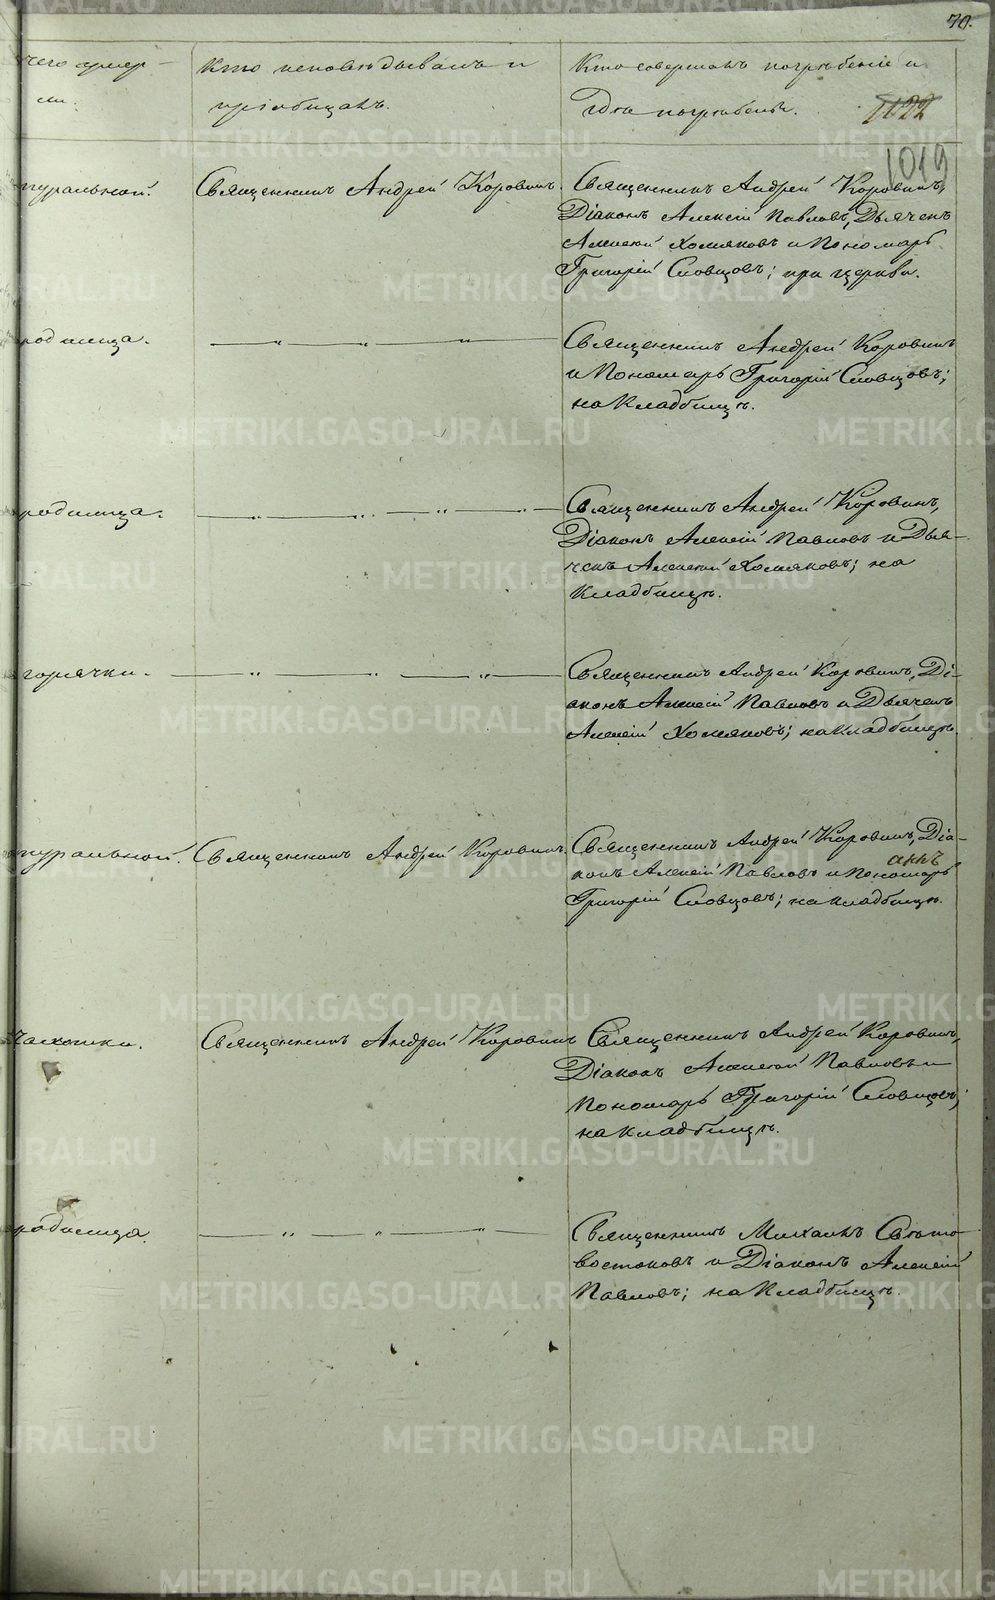 70.
чего умер-
ли.
Кто исповѣдывалъ и
пріобщалъ.
Кто совершалъ погребеніе и
гдѣ погребены.
1122
1019
туральной.
Священникъ Андрей Коровинъ.
Священникъ Андрей Коровинъ,
Діаконъ Алексій Павловъ, Дьячекъ
Алексій Хомяковъ и Пономарь
Григорій Словцовъ; при церкви.
родимца.
— „ — „ — „ —
Священникъ Андрей Коровинъ
и Пономарь Григорій Словцовъ;
на Кладбищѣ.
родимца.
— „ — „ — „ — „ —
Священникъ Андрей Коровинъ,
Діаконъ Алексій Павловъ и Дья-
чекъ Алексій Хомяковъ; на
Кладбищѣ.
горячки.
— „ — „ — „ —
Священникъ Андрей Коровинъ, Ді-
аконъ Алексій Павловъ и Дьячекъ
Алексій Хомяковъ; на Кладбищѣ.
туральной.
Священникъ Андрей Коровинъ.
Священникъ Андрей Коровинъ, Діа-
конъ Алексій Павловъ и Пономарь
Григорій Словцовъ; на кладбищѣ.
Чахотки.
Священникъ Андрей Коровинъ
Священникъ Андрей Коровинъ,
Діаконъ Алексій Павловъ и
Пономарь Григорій Словцовъ;
на кладбищѣ.
родимца.
— „ — „ — „ —
Священникъ Михаилъ Свѣто-
востоковъ и Діаконъ Алексій
Павловъ; на Кладбищѣ.
METRIKI.GASO-URAL.RU